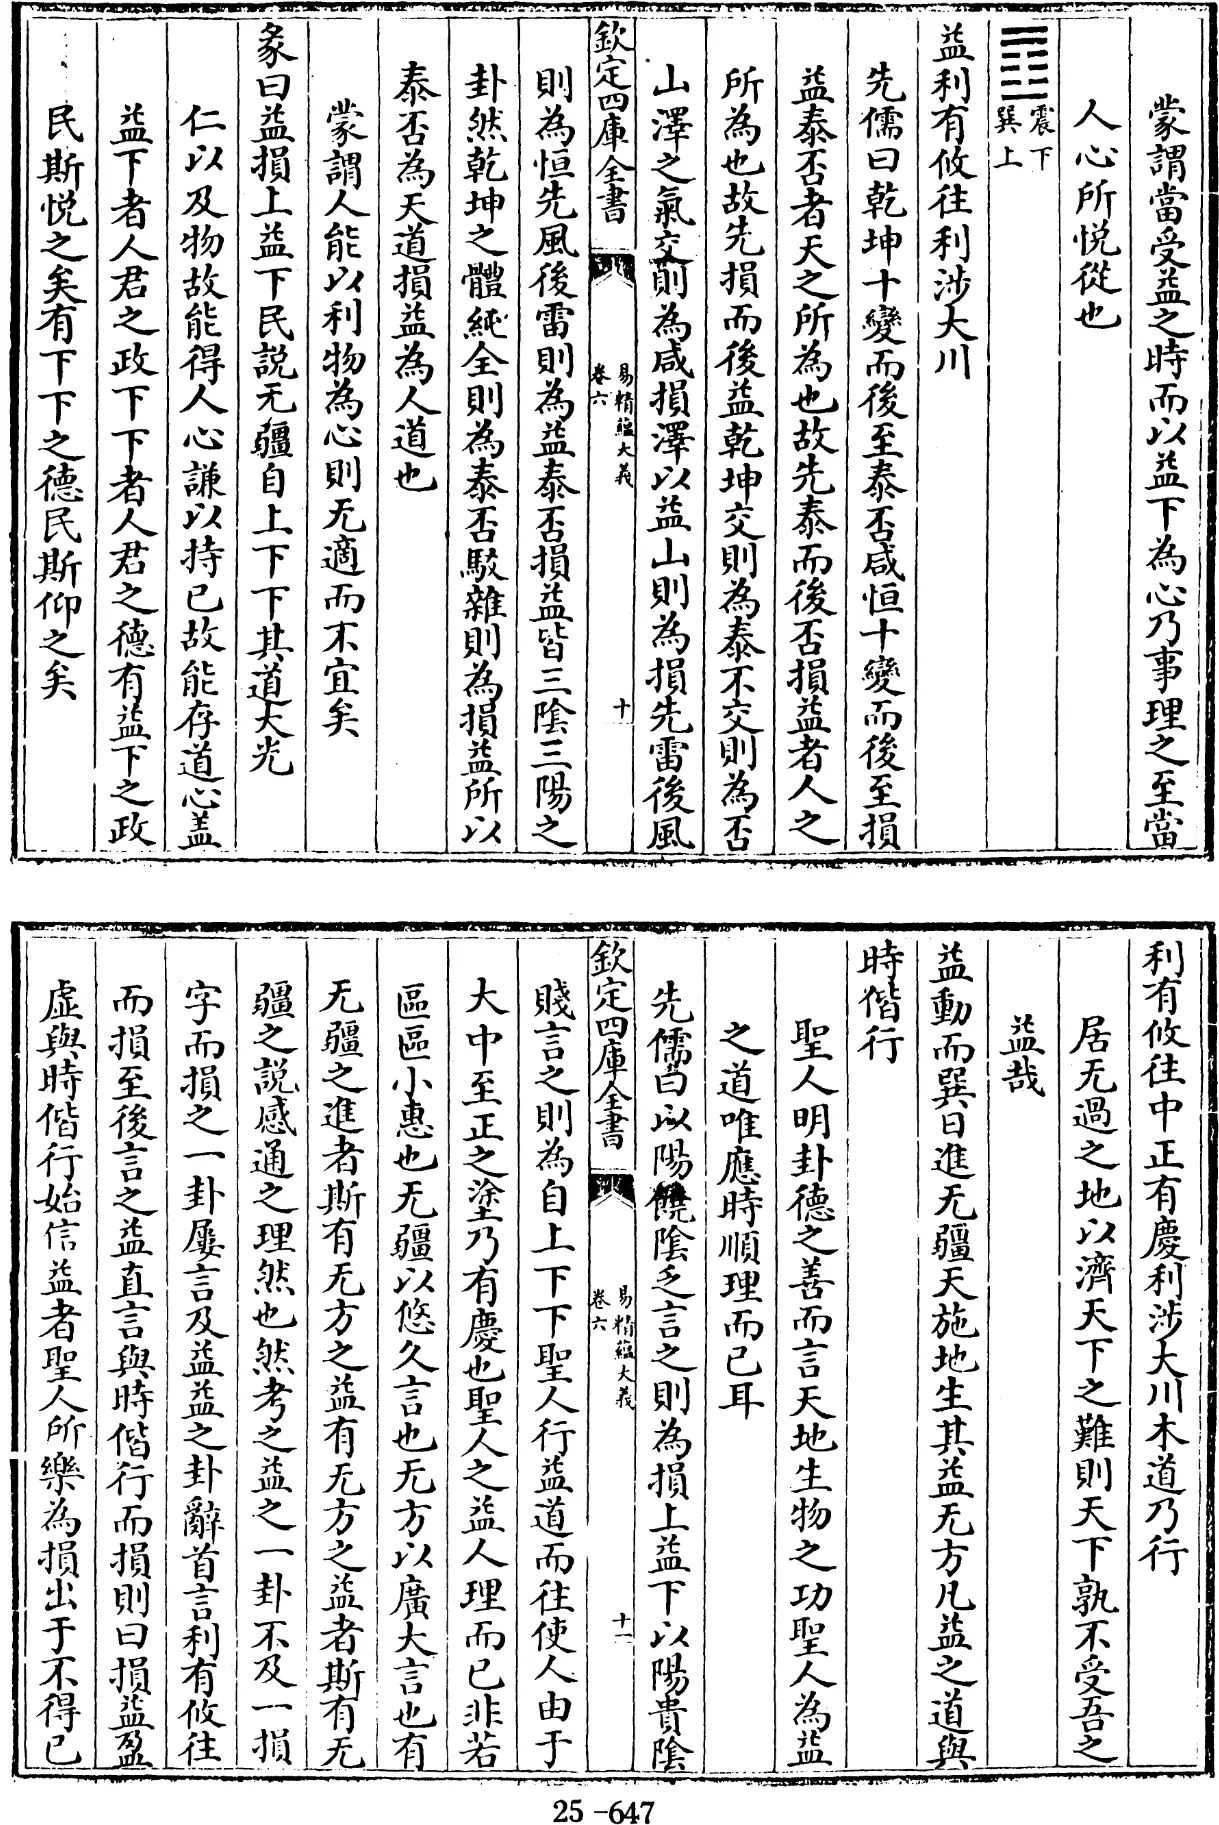 蒙謂當受益之時而以益下為心乃事理之至當
人心所悦從也
䷩震下巽上
益利有攸往利涉大川
先儒曰乾坤十變而後至泰否咸恒十變而後至損
益泰否者天之所為也故先泰而後否損益者人之
所為也故先損而後益乾坤交則為泰不交則為否
山澤之氣交則為咸損澤以益山則為損先雷後風
欽定四庫全書
易精蘊大義
卷六
十
則為恒先風後雷則為益泰否損益皆三陰三陽之
卦然乾坤之體純全則為泰否駁雜則為損益所以
泰否為天道損益為人道也
蒙謂人能以利物為心則无適而不宜矣
彖曰益損上益下民説无疆自上下下其道大光
仁以及物故能得人心謙以持已故能存道心盖
益下者人君之政下下者人君之德有益下之政
民斯悦之矣有下下之德民斯仰之矣
利有攸往中正有慶利涉大川木道乃行
居无過之地以濟天下之難則天下孰不受吾之
益哉
益動而巽日進无疆天施地生其益无方凡益之道與
時偕行
聖人明卦德之善而言天地生物之功聖人為益
之道唯應時順理而已耳
先儒曰以陽饒陰乏言之則為損上益下以陽貴陰
欽定四庫全書
易精蘊大義
卷六
十一
賤言之則為自上下下聖人行益道而往使人由于
大中至正之塗乃有慶也聖人之益人理而已非若
區區小惠也无疆以悠久言也无方以廣大言也有
无疆之進者斯有无方之益有无方之益者斯有无
疆之説感通之理然也然考之益之一卦不及一損
字而損之一卦屢言及益益之卦辭首言利有攸往
而損至後言之益直言與時偕行而損則曰損益盈
虛與時偕行始信益者聖人所樂為損出于不得已
25-647